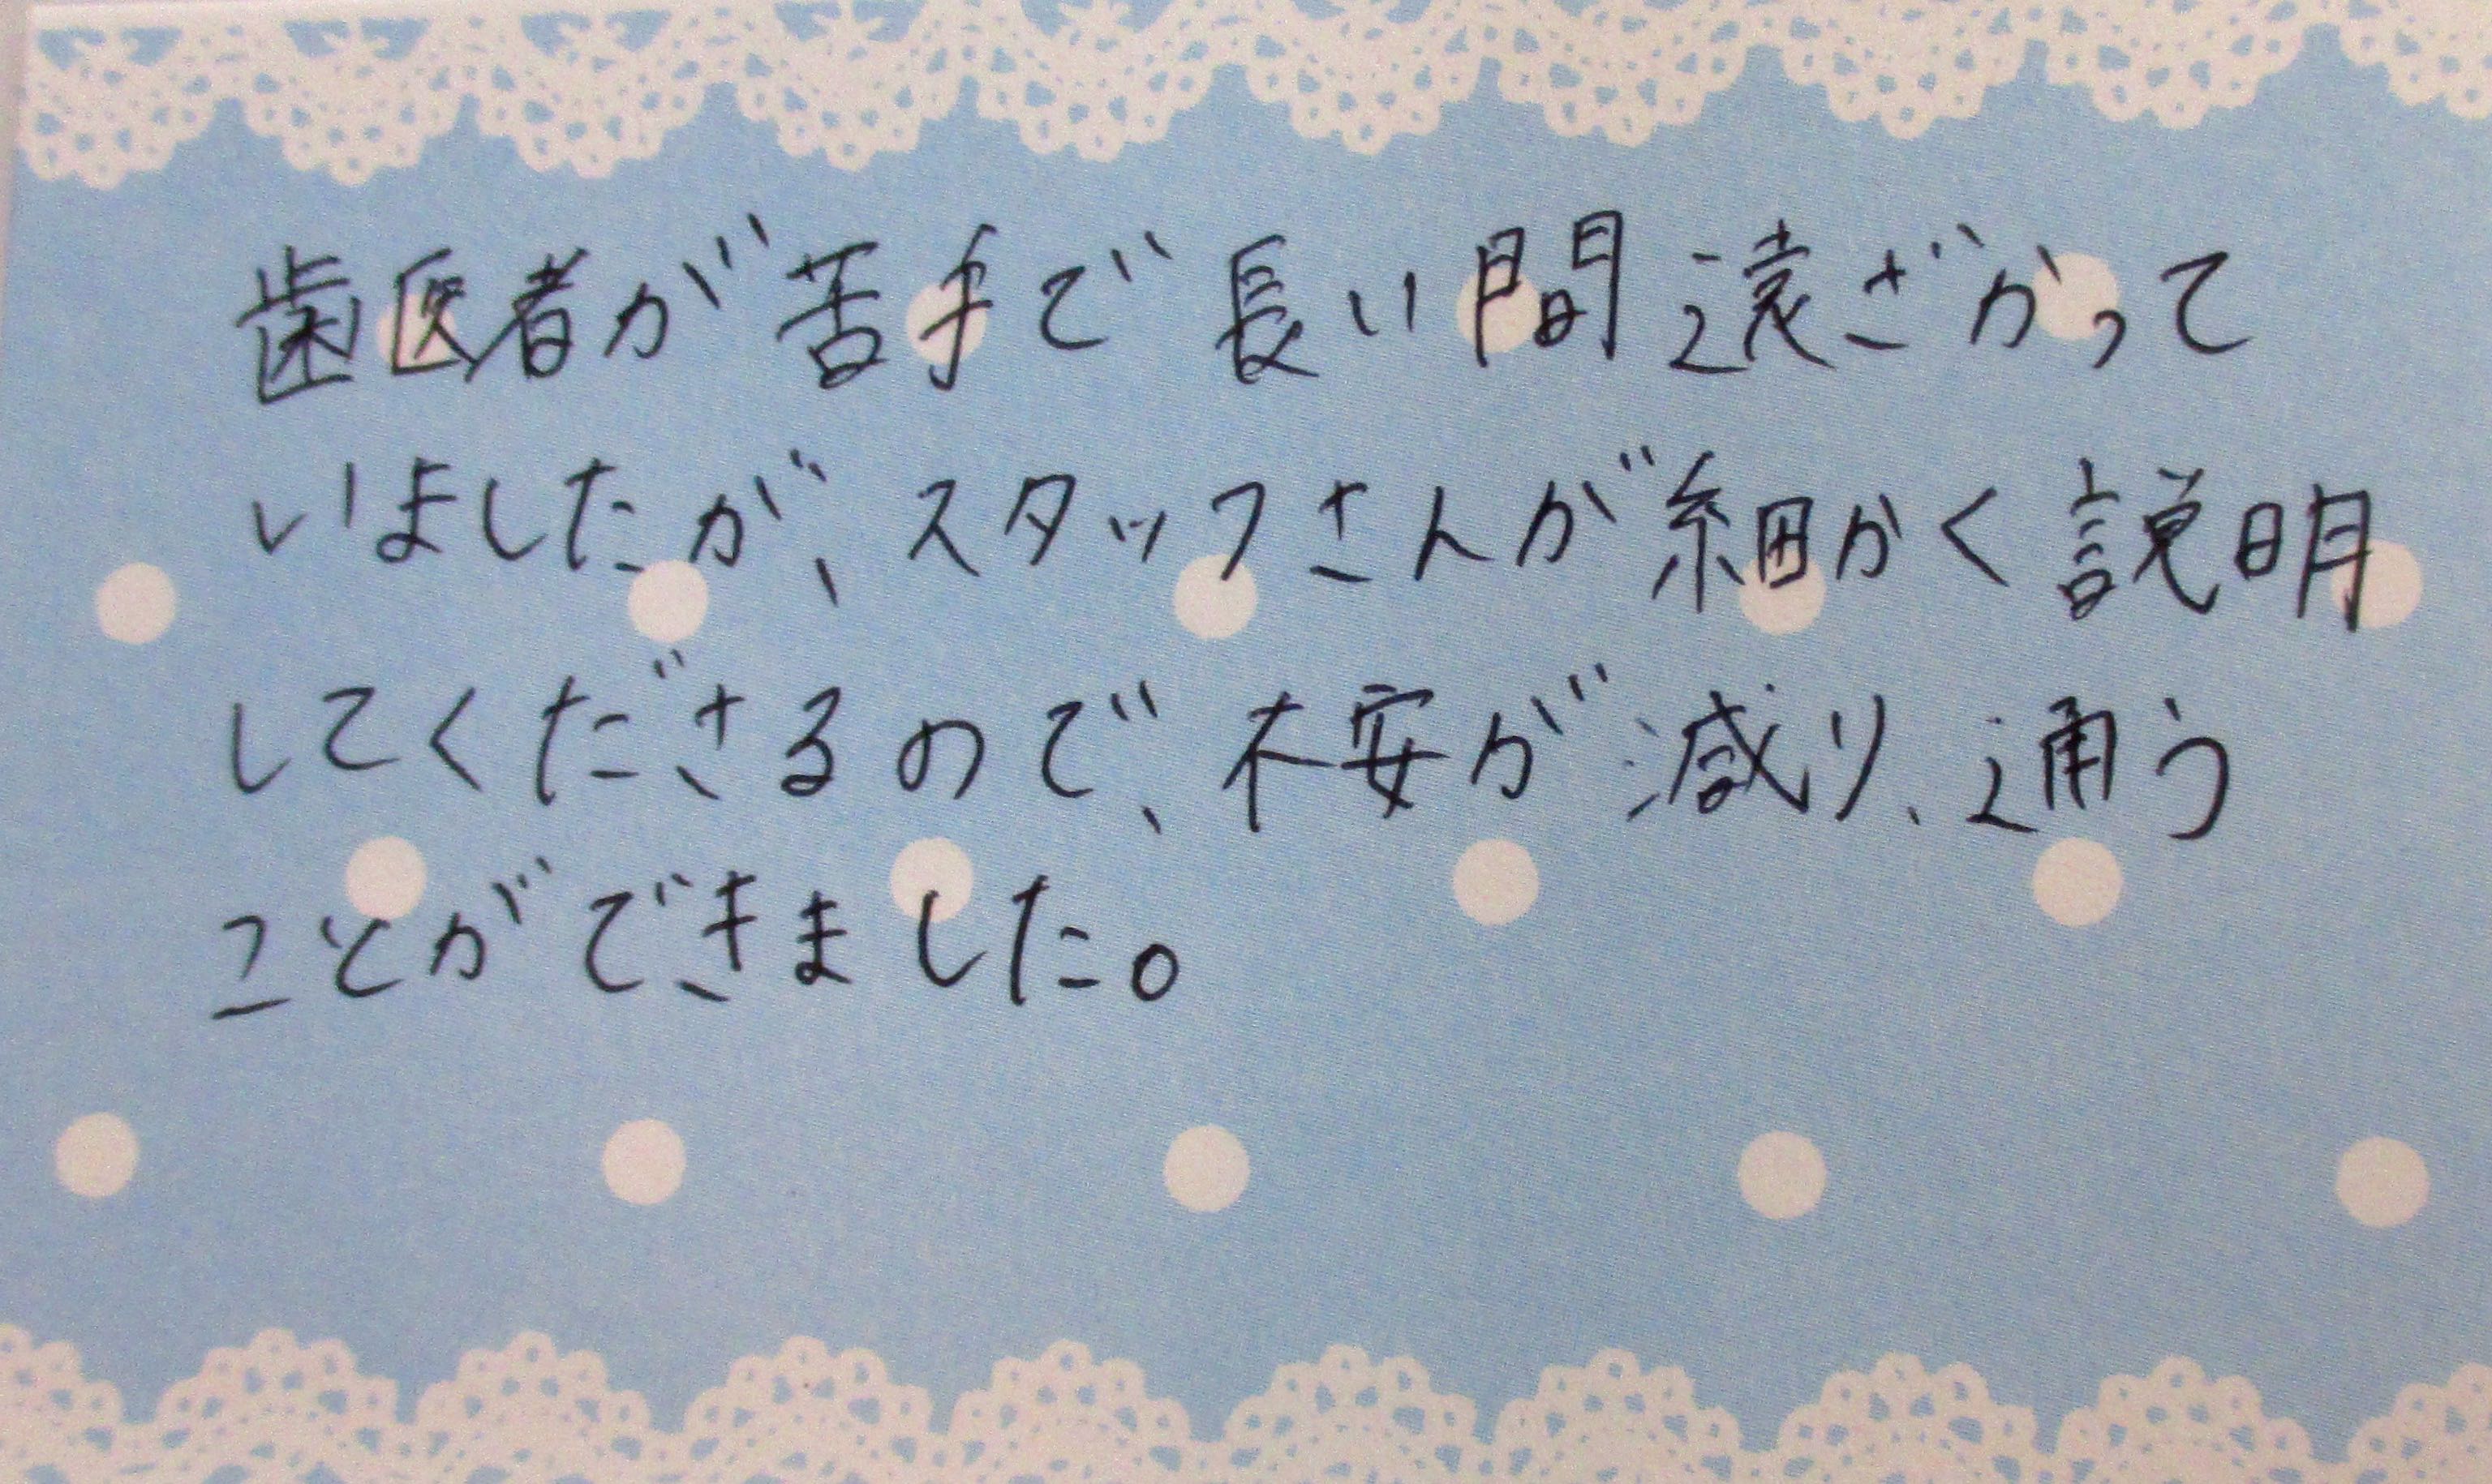 歯医者が苦手で長い間遠ざかって
いましたが、スタッフさんが細かく説明
してくださるので、不安が減り、通う
ことができました。